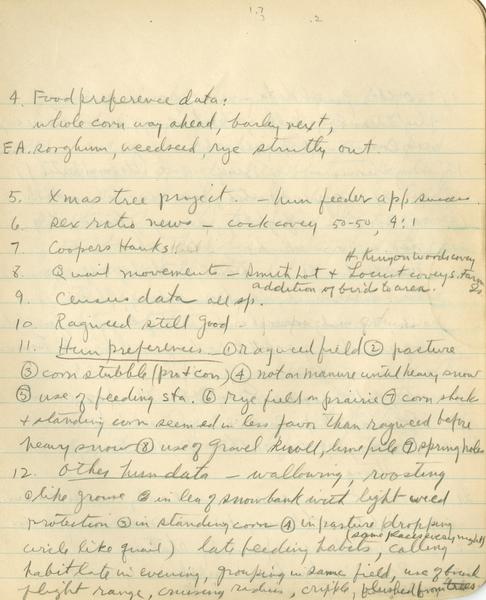 4. Food preference data:
whole corn way ahead, barley next,
EA. sorghum, weedseed, rye strictly out.
5. Xmas tree project. - hun feeder app success.
6. sex ratio news - cock covey 50-50, 4:1
7 Coopers Hawks
H. Kingon woods covey
8 Quail movements - Smith lot + Locust coveys.
addition of birds to area.
9. Census data all sp.
10. Ragweed still good
11. Hun preferences ① ragweed field ② pasture
③ corn stubble (pro + con) ④ not on manure until heavy snow
⑤ use of feeding sta. ⑥ rye field on prairie ⑦ corn shock
+ standing corn seemed in less favor than ragweed before
heavy snow ⑧ use of gravel knoll, lime pile ⑨ spring holes
12. Other hun data - wallowing, roosting
① like grouse ② in lea of snowbank with light weed
protection ③ in standing corn ④ in pasture dropping
(same place every night)
circle like quail) late feeding habits, calling
habit late in evening, grouping in same field, use of brush
flight range, cruising radius, cripple, flushed from trees